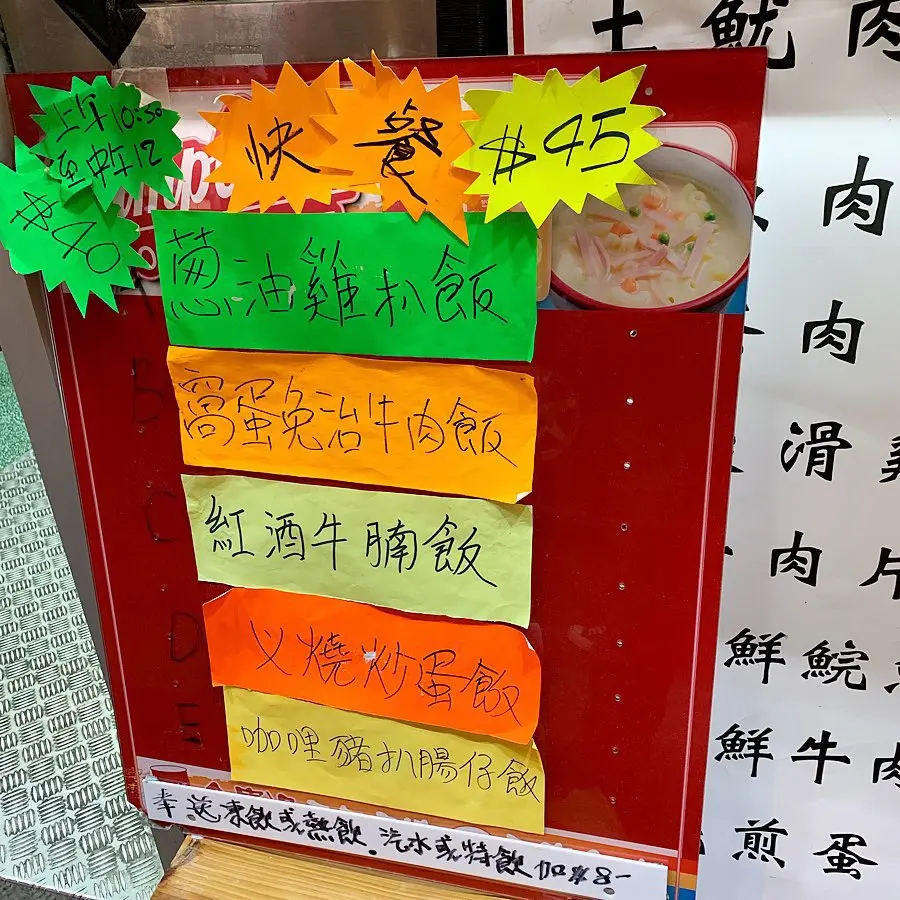 上午10:30
至中午12
$40
快餐
$45
葱油雞扒飯
B 窩蛋免治牛肉飯
C 紅酒牛腩飯
D 叉燒炒蛋飯
E 咖哩豬扒腸仔飯
幸送凍飲或熱飲 汽水或特飲加$8-
魷 肉
肉
肉
滑
肉 片
鮮 鯇
鮮 牛 肉
煎 蛋